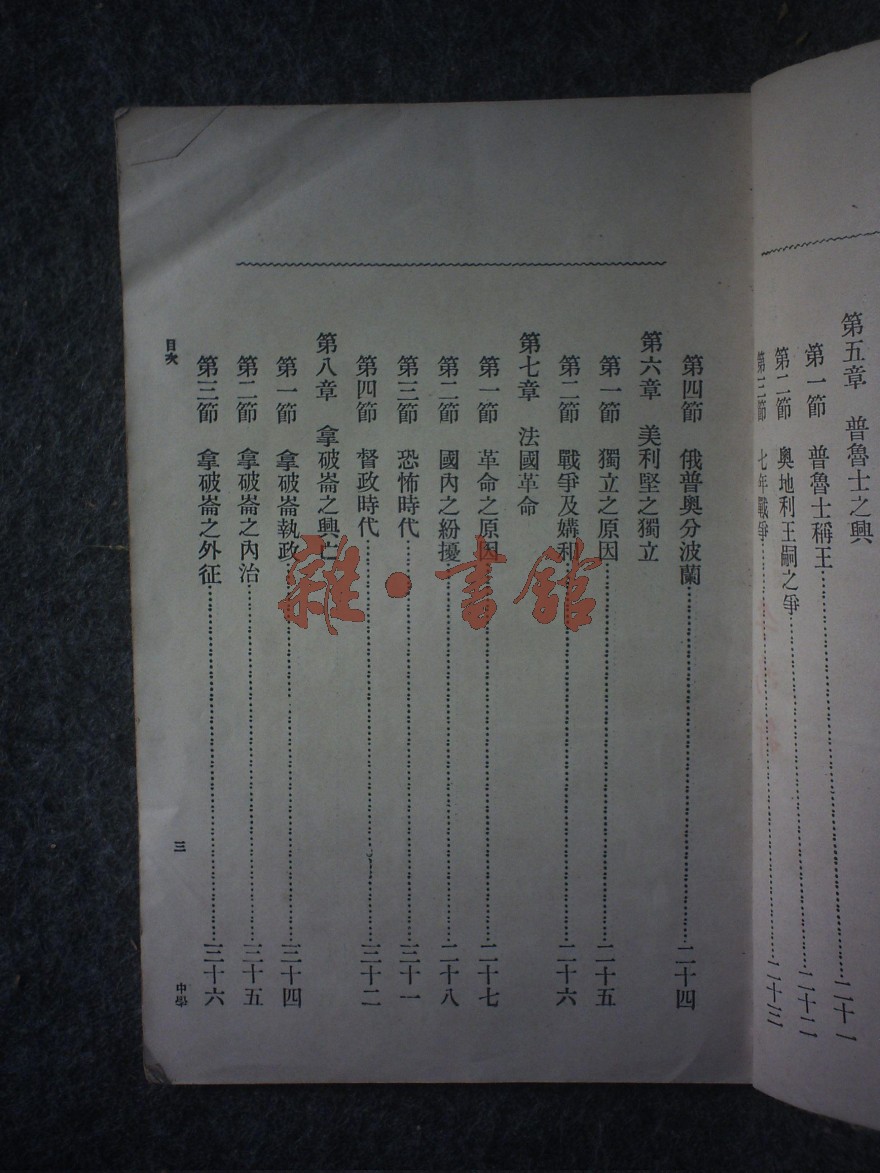 第五章　普魯士之興
第一節　普魯士稱王……二十一
第二節　奧地利王嗣之爭……二十二
第三節　七年戰爭……二十三
第四節　俄普奧分波蘭……二十四
第六章　美利堅之獨立
第一節　獨立之原因……二十五
第二節　戰爭及媾和……二十六
第七章　法國革命
第一節　革命之原因……二十七
第二節　國內之紛擾……二十八
第三節　恐怖時代……三十一
第四節　督政時代……三十二
第八章　拿破崙之興亡
第一節　拿破崙執政……三十四
第二節　拿破崙之內治……三十五
第三節　拿破崙之外征……三十六
目次　三　中學
雜·書館